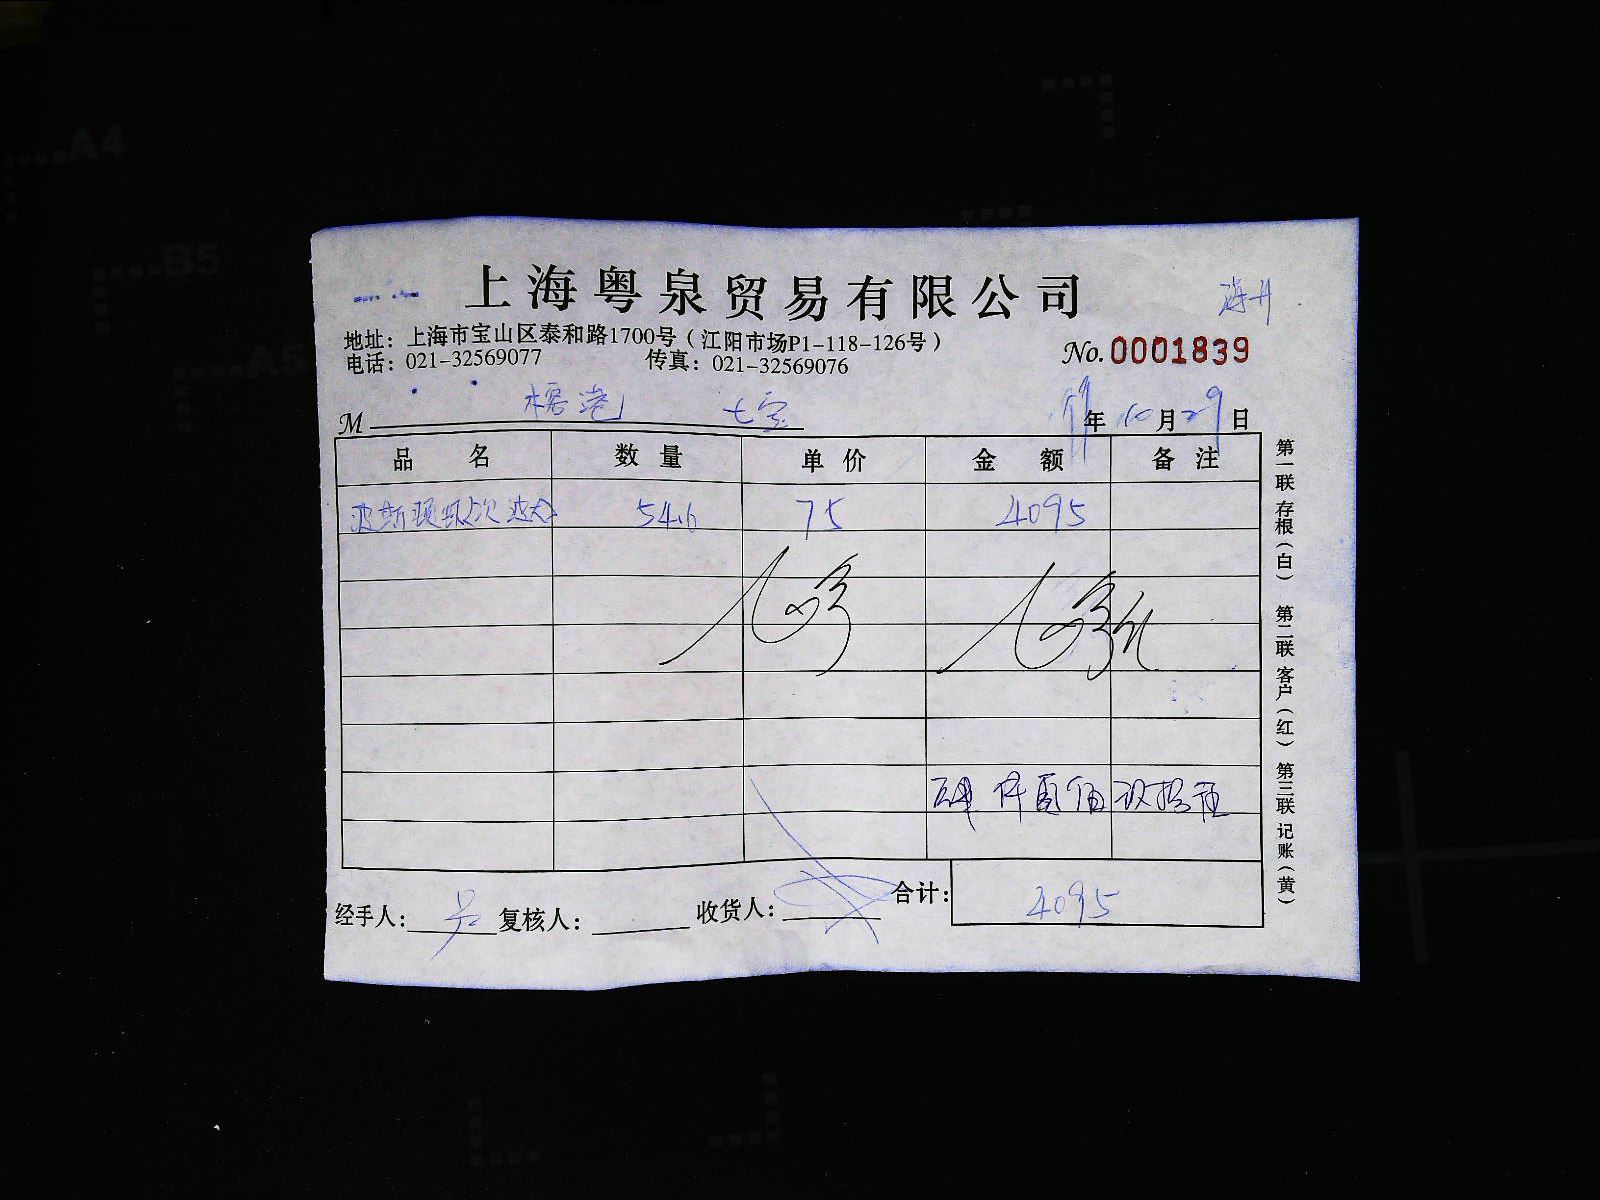 上海粤泉贸易有限公司
地址：上海市宝山区泰和路1700号（江阳市场P1-118-126号）
电话：021-32569077 传真：021-32569076
No. 0001839
M 七宝
年 10月29日
品名 数量 单价 金额 备注
波斯顿 54.6 75 4095
肆仟 佰玖拾
经手人： 复核人： 收货人： 合计：4095
第一联 存根（白） 第二联 客户（红） 第三联 记账（黄）
A4
B5
A5